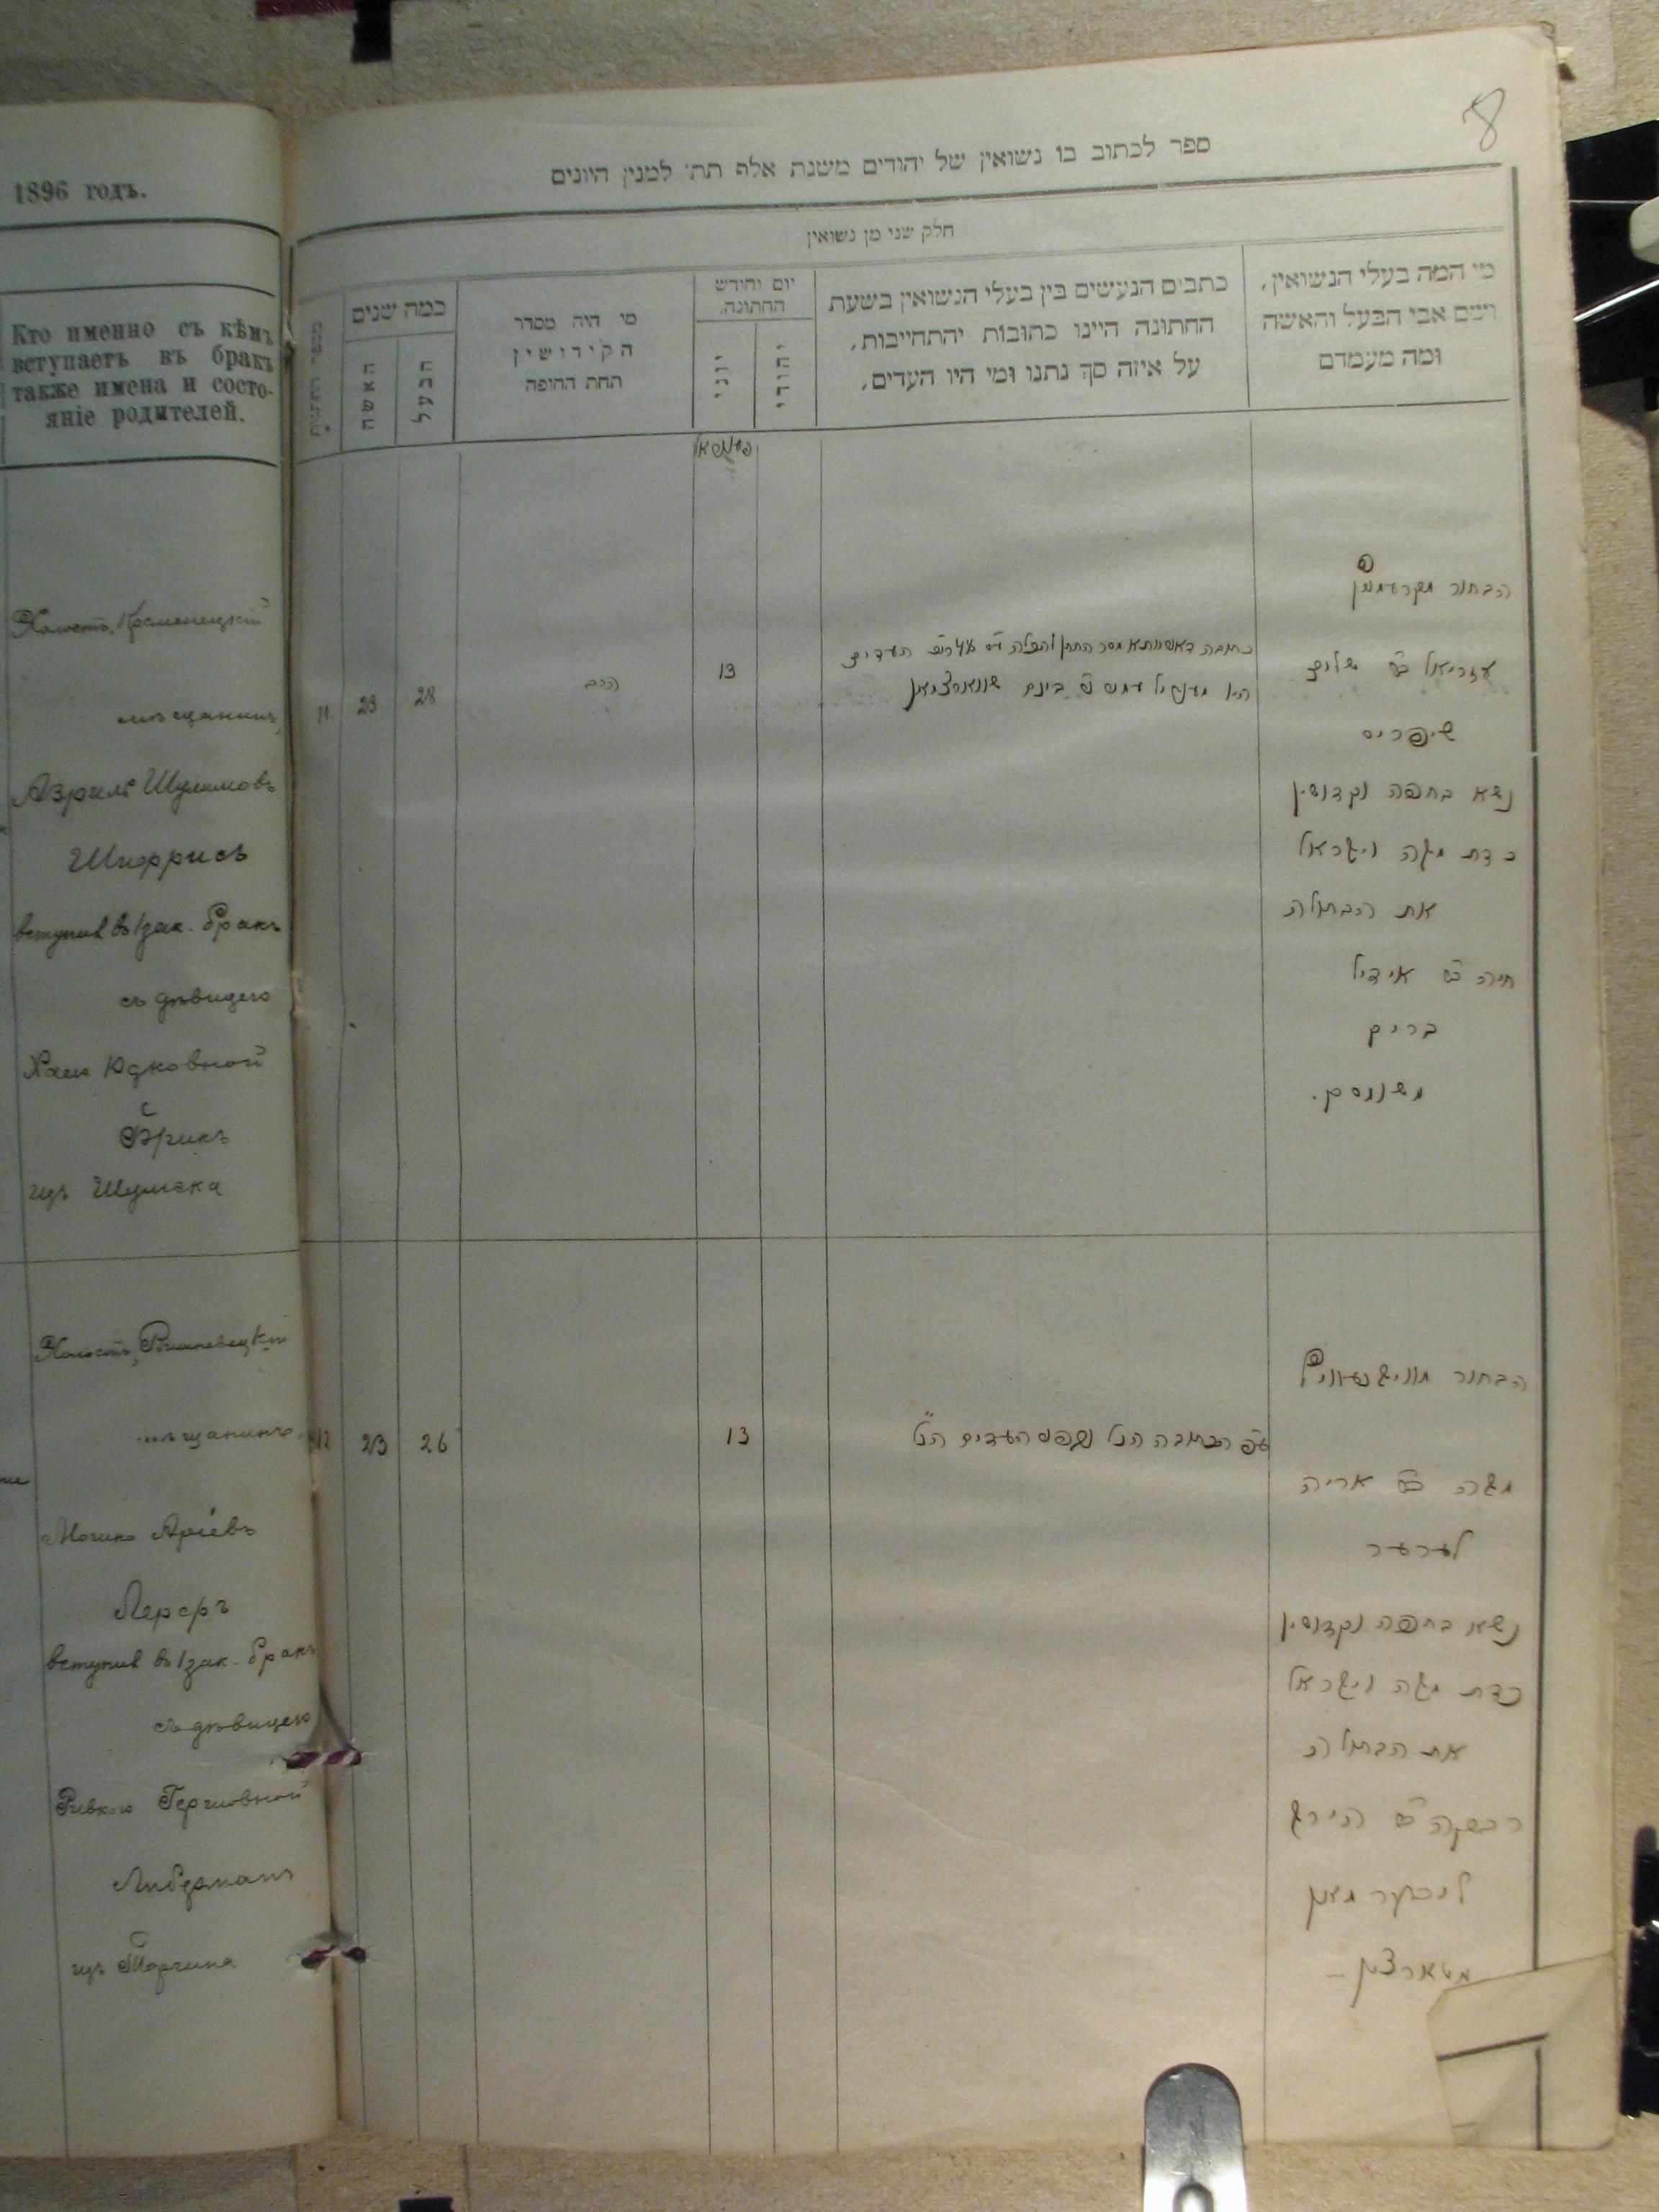 1896 годъ.
Кто именно съ кѣмъ
вступаетъ въ бракъ
также имена и состо-
яніе родителей.
Холостъ, Кременецкій
мѣщанинъ
Азриль Шулимовъ
Шифрисъ
вступил въ 1 зак. бракъ
съ дѣвицею
Хаею Юдковной
Брикъ
изъ Шумска
Холостъ, Вишневецкій
мѣщанинъ
Мошко Аріевъ
Лереръ
вступил въ 1 зак. бракъ
съ дѣвицею
Ривкою Гершовной
Либерманъ
изъ Торчина
8
ספר לכתוב בו נשואין של יהודים משנת אלף תת׳ למנין היונים
חלק שני מן נשואין
מי המה בעלי הנשואין,
ושם אבי הבעל והאשה
ומה מעמדם
כתבים הנעשים בין בעלי הנשואין בשעת
החתונה היינו כתובות יהתחייבות,
על איזה סך נתנו ומי היו העדים,
יום וחודש
החתונה
יהודי
יוני
מי היה מסדר
הקידושין
תחת החופה
כמה שנים
הבעל
האשה
הבחור
עזריאל ב״ר שלום
שיפריס
נשא בחופה וקדושין
כדת משה וישראל
את הבתולה
חיה ב״ר אידיל
בריק
משומסק.
כתובה דאשתותא מסר החתן להכלה העדים
היו שווארצמאן
13
הרב
28
23
11
הבחור
משה ב״ר אריה
לערער
נשא בחופה וקדושין
כדת משה וישראל
את הבתולה
רבקה ב״ר הירש
ליבערמאן
מטארצין
הכתובה הנ״ל העדים הנ״ל
13
26
23
12